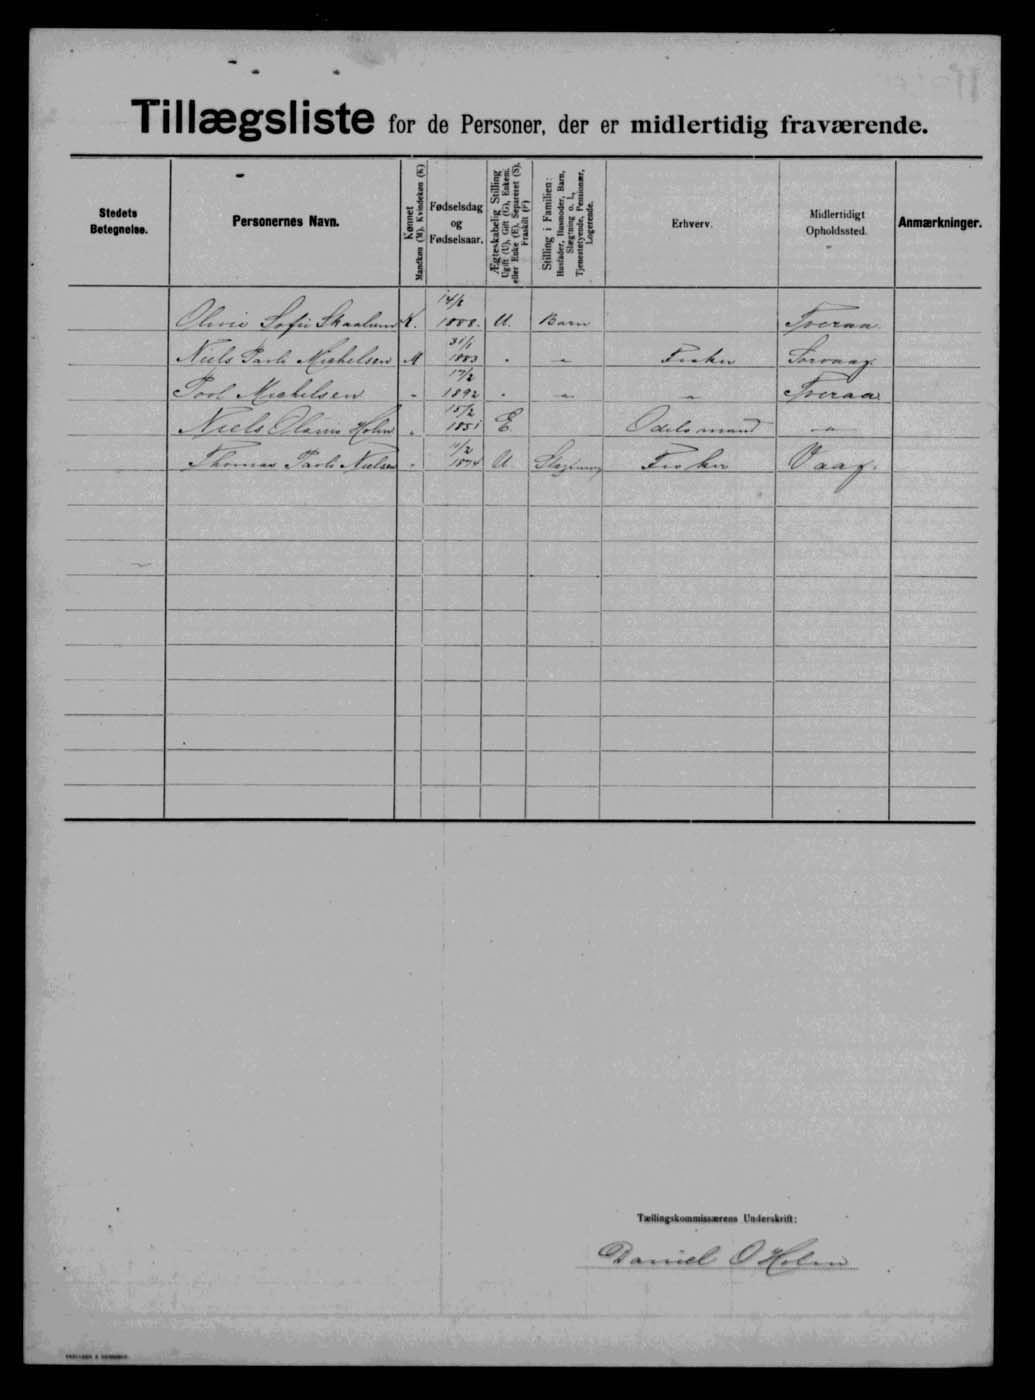 Tillægsliste for de Personer, der er midlertidig fraværende.
Stedets Betegnelse.
Personernes Navn.
Kønnet Mandkøn (M). Kvindekøn (K)
Fødselsdag og Fødselsaar.
Ægteskabelig Stilling Ugift (U), Gift (G), Enkem. eller Enke (E), Separeret (S), Fraskilt (F)
Stilling i Familien: Husfader, Husmoder, Barn, Slægtning o. l., Tjenestetyende, Pensionær, Logerende.
Erhverv.
Midlertidigt Opholdssted.
Anmærkninger.
Olivie Sofie Skaalum K. 14/2 1888. U. Barn Tveraa
Niels Pauli Michelsen M 31/1 1883 " " Fisker Sorvaag.
Poul Michelsen " 17/2 1892 " " " Tveraa
Niels Olaus Holm " 15/2 1851 E. Odelsmand "
Thomas Pauli Nielsen " 11/2 1874 U Slægtning Fisker Vaag.
Tællingskommissærens Underskrift:
Daniel O Holm